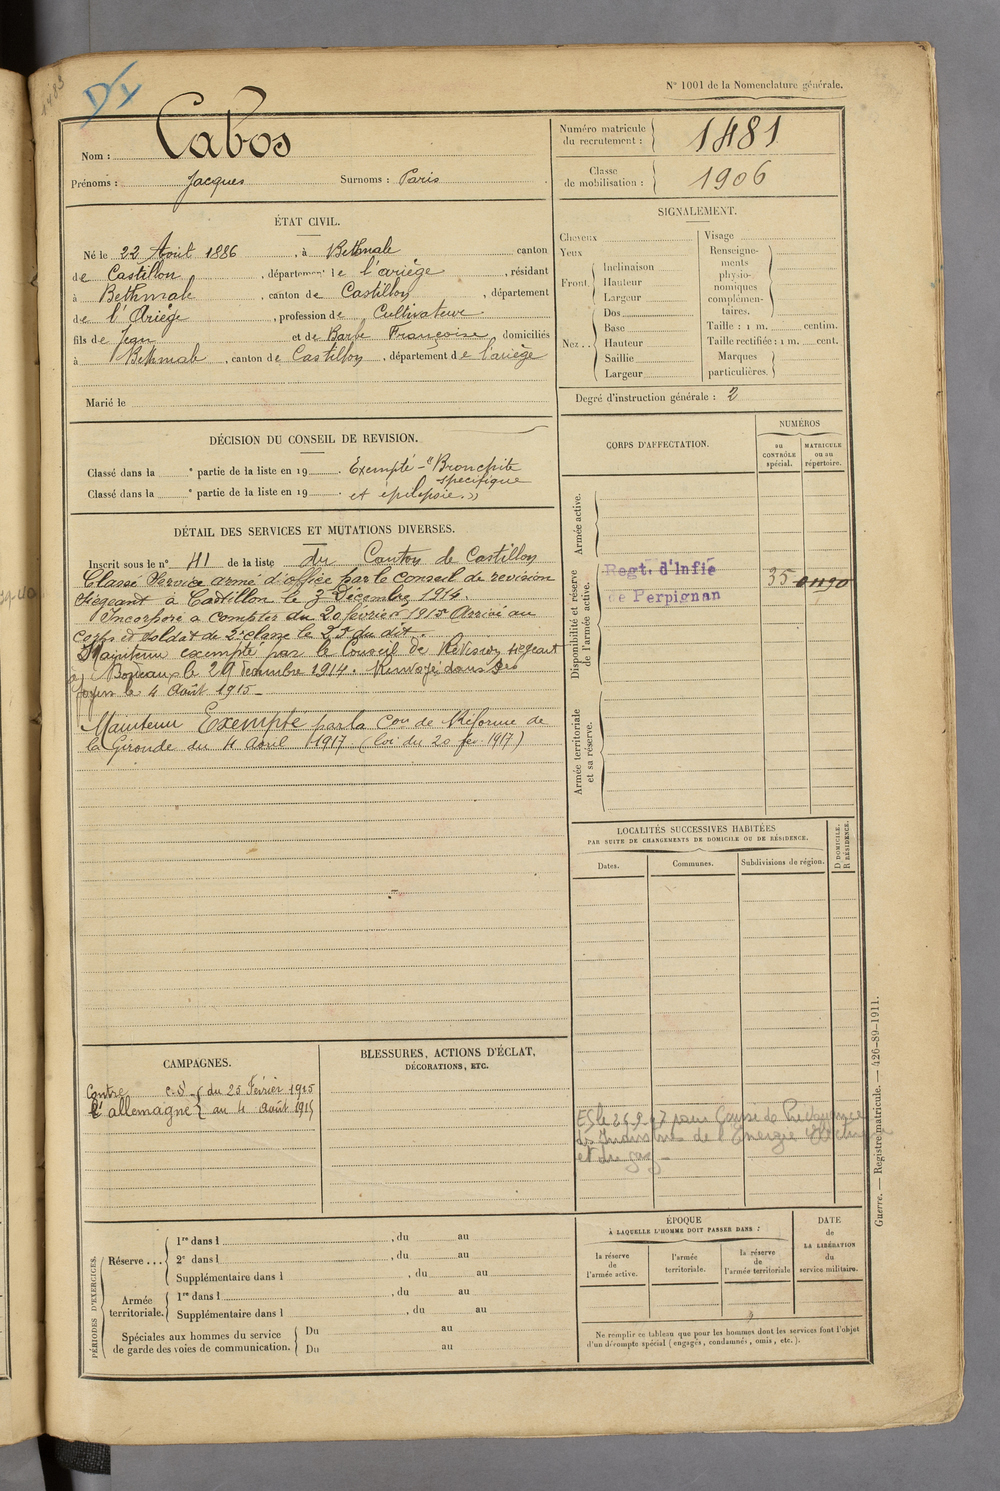 1483
N° 1001 de la Nomenclature générale.
Nom : Cabos
Prénoms : Jacques Surnoms : Paris
Numéro matricule du recrutement : 1481
Classe de mobilisation : 1906
ÉTAT CIVIL.
Né le 22 Août 1886, à Bethmale canton
de Castillon, département de l'ariège, résidant
à Bethmale, canton de Castillon, département
de l'Ariège, profession de Cultivateur
fils de Jean et de Barbe Françoise domiciliés
à Bethmale, canton de Castillon, département de l'ariège
Marié le
SIGNALEMENT.
Cheveux
Yeux
Front. Inclinaison
Hauteur
Largeur
Nez .. Dos
Base
Hauteur
Saillie
Largeur
Visage
Renseigne-
ments
physio-
nomiques
complémen-
taires.
Taille : 1 m. centim.
Taille rectifiée : 1 m. cent.
Marques
particulières.
Degré d'instruction générale : 2
DÉCISION DU CONSEIL DE REVISION.
Classé dans la e partie de la liste en 19 . Exempté - "Bronchite
spécifique
Classé dans la e partie de la liste en 19 . et épilepsie."
DÉTAIL DES SERVICES ET MUTATIONS DIVERSES.
Inscrit sous le n° 41 de la liste du Canton de Castillon
Classé Service armé d'office par le conseil de revision
siégeant à Castillon le 3 Décembre 1914.
Incorporé à compter du 20 février 1915 Arrivé au
corps et soldat de 2e classe le 25 du dit.
Maintenu exempté par le Conseil de Révision siégeant
à Bordeaux le 29 décembre 1914. Renvoyé dans ses
foyers le 4 Août 1915 -
Maintenu Exempté par la Con de Réforme de
la Gironde du 4 avril 1917 (loi du 20 fer 1917)
CORPS D'AFFECTATION.
NUMÉROS
au
CONTRÔLE
spécial.
MATRICULE
ou au
répertoire.
Armée active.
Disponibilité et réserve
de l'armée active.
Regt. d'Infie
de Perpignan
35
Armée territoriale
et sa réserve.
LOCALITÉS SUCCESSIVES HABITÉES
PAR SUITE DE CHANGEMENTS DE DOMICILE OU DE RÉSIDENCE.
Dates.
Communes.
Subdivisions de région.
D. DOMICILE.
R. RÉSIDENCE.
ES le 26-9-47 pour Caisse de Prévoyance
des Industries de l'Energie Electrique
et du gaz -
CAMPAGNES.
Contre c. S. du 25 Février 1915
l'allemagne au 4 août 1915
BLESSURES, ACTIONS D'ÉCLAT,
DÉCORATIONS, ETC.
PÉRIODES D'EXERCICES.
Réserve ... 1re dans l , du au
2e dans l , du au
Supplémentaire dans l , du au
Armée
territoriale. 1re dans l , du au
Supplémentaire dans l , du au
Spéciales aux hommes du service
de garde des voies de communication.
Du au
Du au
ÉPOQUE
À LAQUELLE L'HOMME DOIT PASSER DANS :
la réserve
de
l'armée active.
l'armée
territoriale.
la réserve
de
l'armée territoriale
DATE
de
LA LIBÉRATION
du
service militaire.
Ne remplir ce tableau que pour les hommes dont les services font l'objet
d'un décompte spécial (engagés, condamnés, omis, etc.).
Guerre. — Registre matricule. — 426-89-1911.